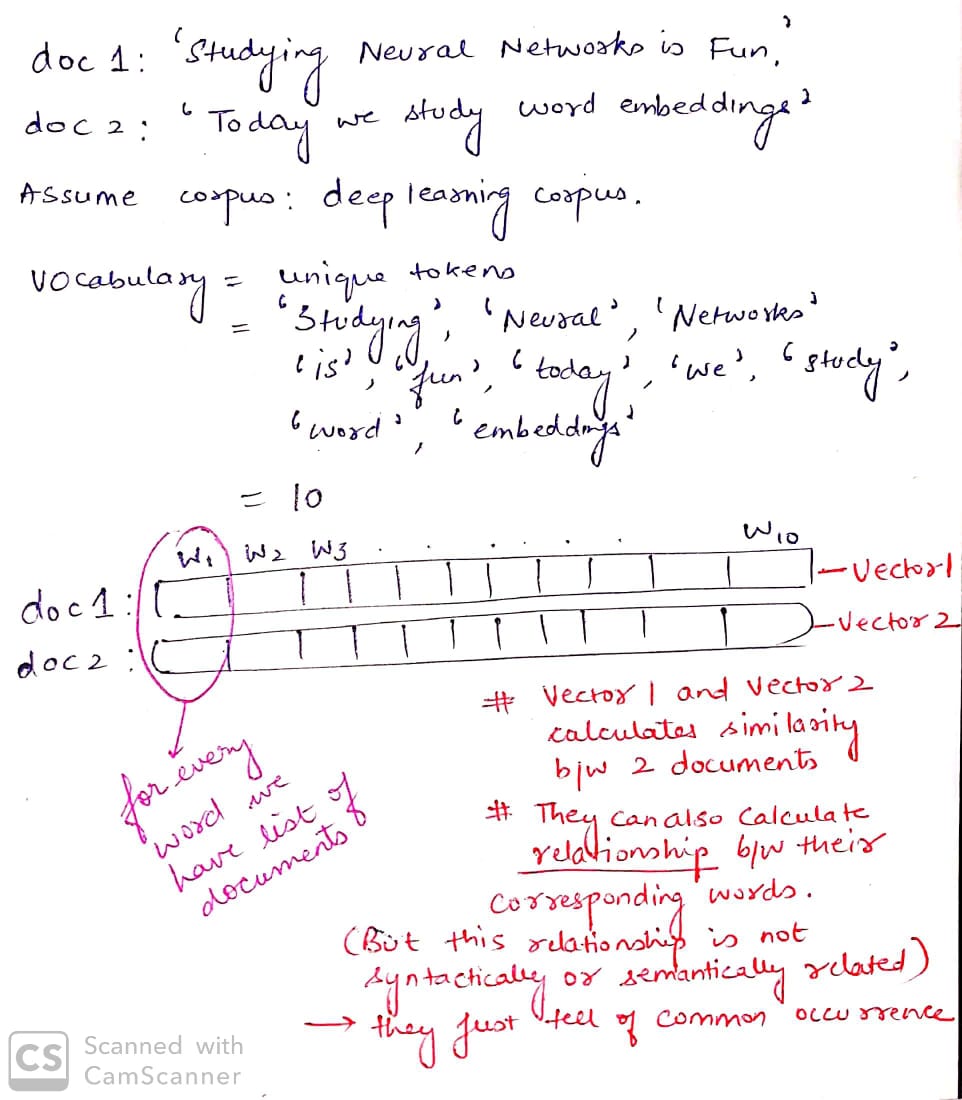 doc 1: 'Studying Neural Networks is Fun,'
doc 2: 'Today we study word embeddings'
Assume corpus: deep learning corpus.
Vocabulary = unique tokens
= 'Studying', 'Neural', 'Networks'
'is', 'fun', 'today', 'we', 'study',
'word', 'embeddings'
= 10
W1 W2 W3 . . . . . W10
doc 1: - Vector 1
doc 2: - Vector 2
for every
word we
have list of
documents
# Vector 1 and Vector 2
calculates similarity
b/w 2 documents
# They can also Calculate
relationship b/w their
corresponding words.
(But this relationship is not
syntactically or semantically related)
→ they just tell of common occurrence
CS Scanned with
CamScanner